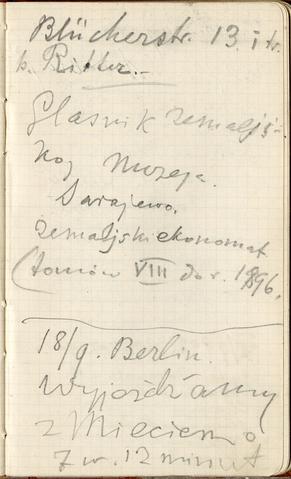 Blücherstr. 13. I tr.
b. Ritter.-
Glasnik zemaljs-
kog muzeja.
Sarajewo.
zemaljski ekonomat
(tomów VIII do r. 1896.
18/9. Berlin.
Wyjeżdżamy
z Mieciem o
7 w. 12 minut